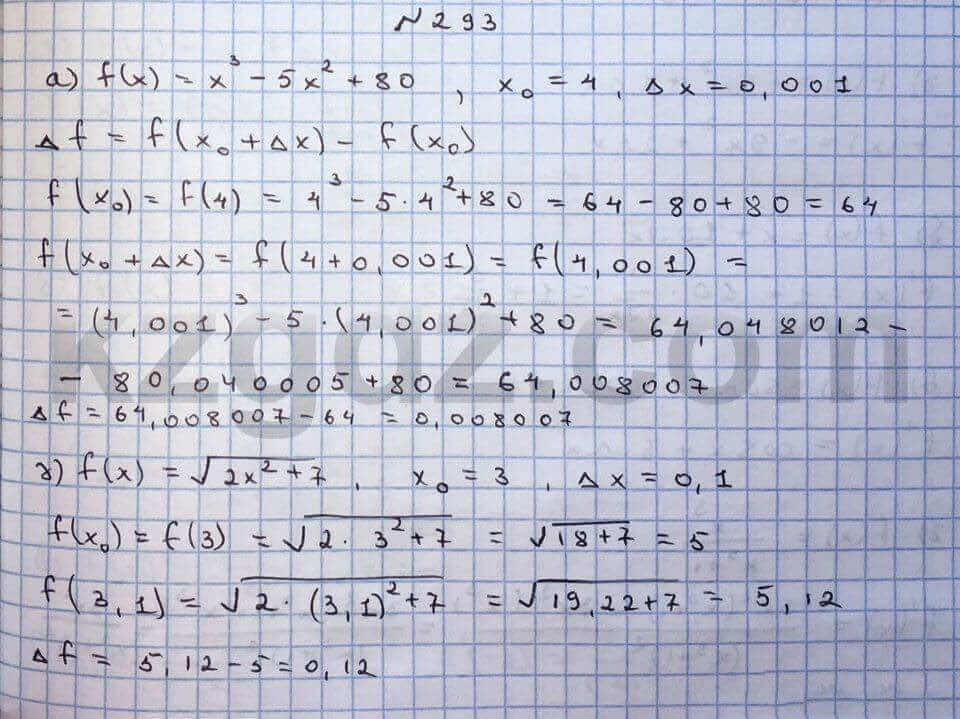 № 293
а) f(x) = x³ - 5x² + 80 , x₀ = 4, Δx = 0,001
Δf = f(x₀ + Δx) - f(x₀)
f(x₀) = f(4) = 4³ - 5·4² + 80 = 64 - 80 + 80 = 64
f(x₀ + Δx) = f(4 + 0,001) = f(4,001) =
= (4,001)³ - 5·(4,001)² + 80 = 64,048012 -
- 80,040005 + 80 = 64,008007
Δf = 64,008007 - 64 = 0,008007
г) f(x) = √(2x² + 7) , x₀ = 3 , Δx = 0,1
f(x₀) = f(3) = √(2·3² + 7) = √(18 + 7) = 5
f(3,1) = √(2·(3,1)² + 7) = √(19,22 + 7) = 5,12
Δf = 5,12 - 5 = 0,12
kzgdz.com